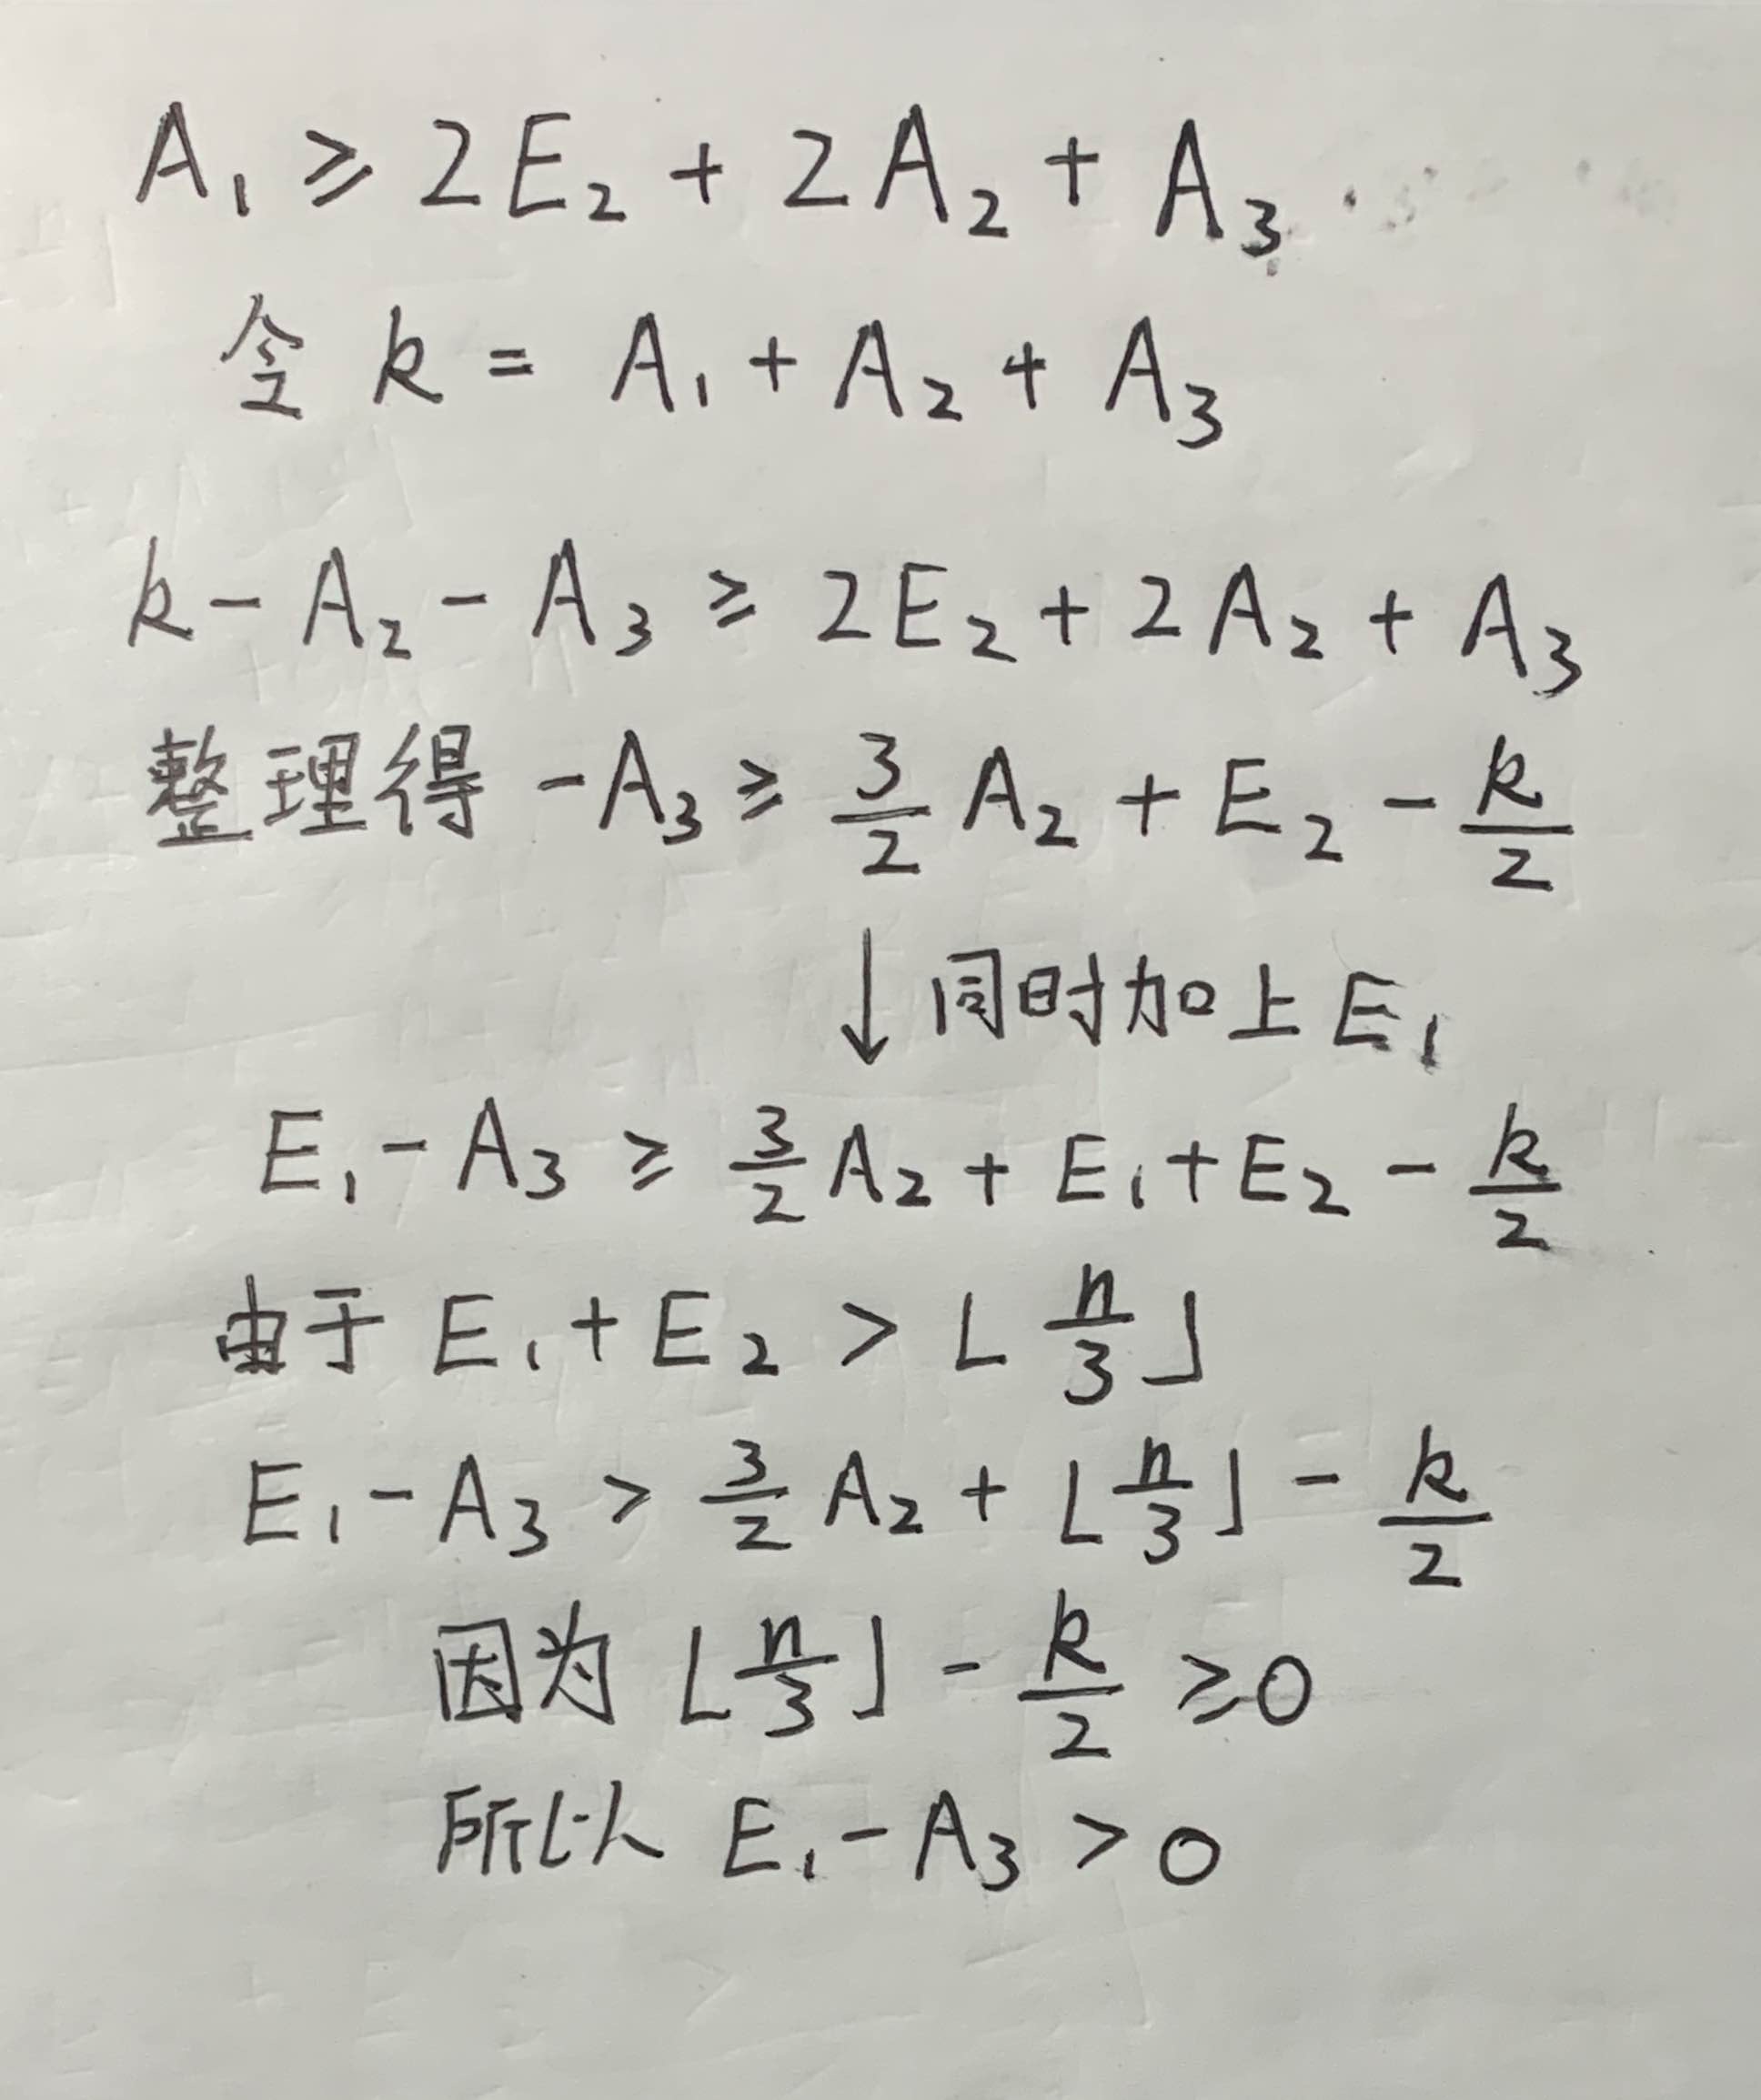 A₁ ≥ 2E₂ + 2A₂ + A₃.
令 k = A₁ + A₂ + A₃
k - A₂ - A₃ ≥ 2E₂ + 2A₂ + A₃
整理得 -A₃ ≥ 3/2 A₂ + E₂ - k/2
↓ 同时加上 E₁
E₁ - A₃ ≥ 3/2 A₂ + E₁ + E₂ - k/2
由于 E₁ + E₂ > ⌊n/3⌋
E₁ - A₃ > 3/2 A₂ + ⌊n/3⌋ - k/2
因为 ⌊n/3⌋ - k/2 ≥ 0
所以 E₁ - A₃ > 0